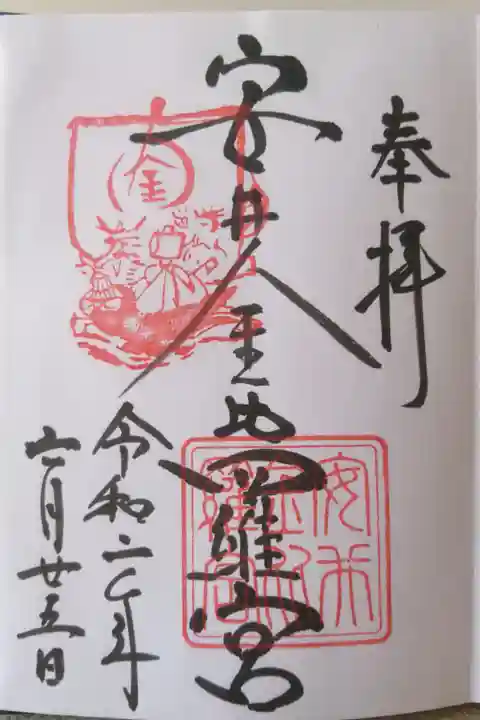 奉拝
安井金比羅宮
令和二年
六月廿五日
金
安井金比羅宮